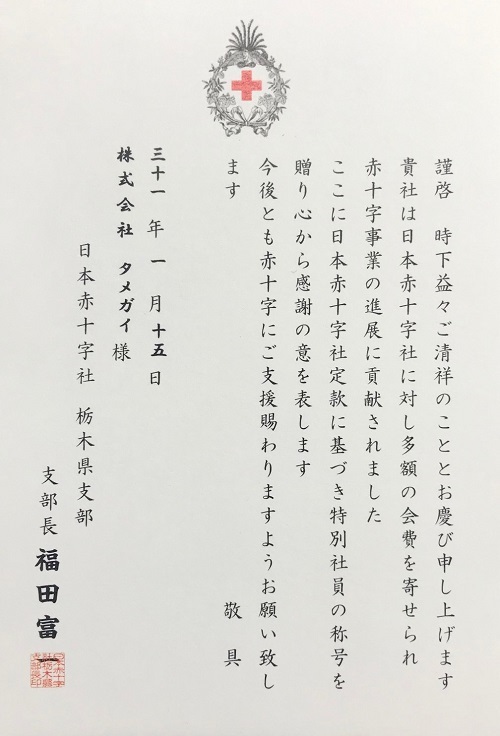 謹啓　時下益々ご清祥のこととお慶び申し上げます
貴社は日本赤十字社に対し多額の会費を寄せられ
赤十字事業の進展に貢献されました
ここに日本赤十字社定款に基づき特別社員の称号を
贈り心から感謝の意を表します
今後とも赤十字にご支援賜わりますようお願い致し
ます　敬具
三十一年一月十五日
株式会社　タメガイ様
日本赤十字社　栃木県支部
支部長　福田富一